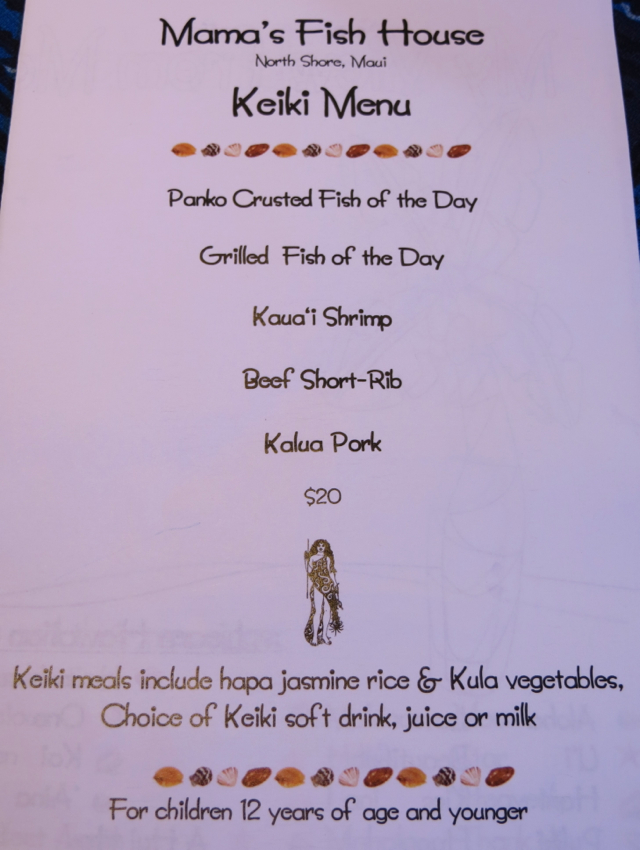 Mama's Fish House
North Shore, Maui
Keiki Menu
Panko Crusted Fish of the Day
Grilled Fish of the Day
Kaua'i Shrimp
Beef Short-Rib
Kalua Pork
$20
Keiki meals include hapa jasmine rice & Kula vegetables,
Choice of Keiki soft drink, juice or milk
For children 12 years of age and younger